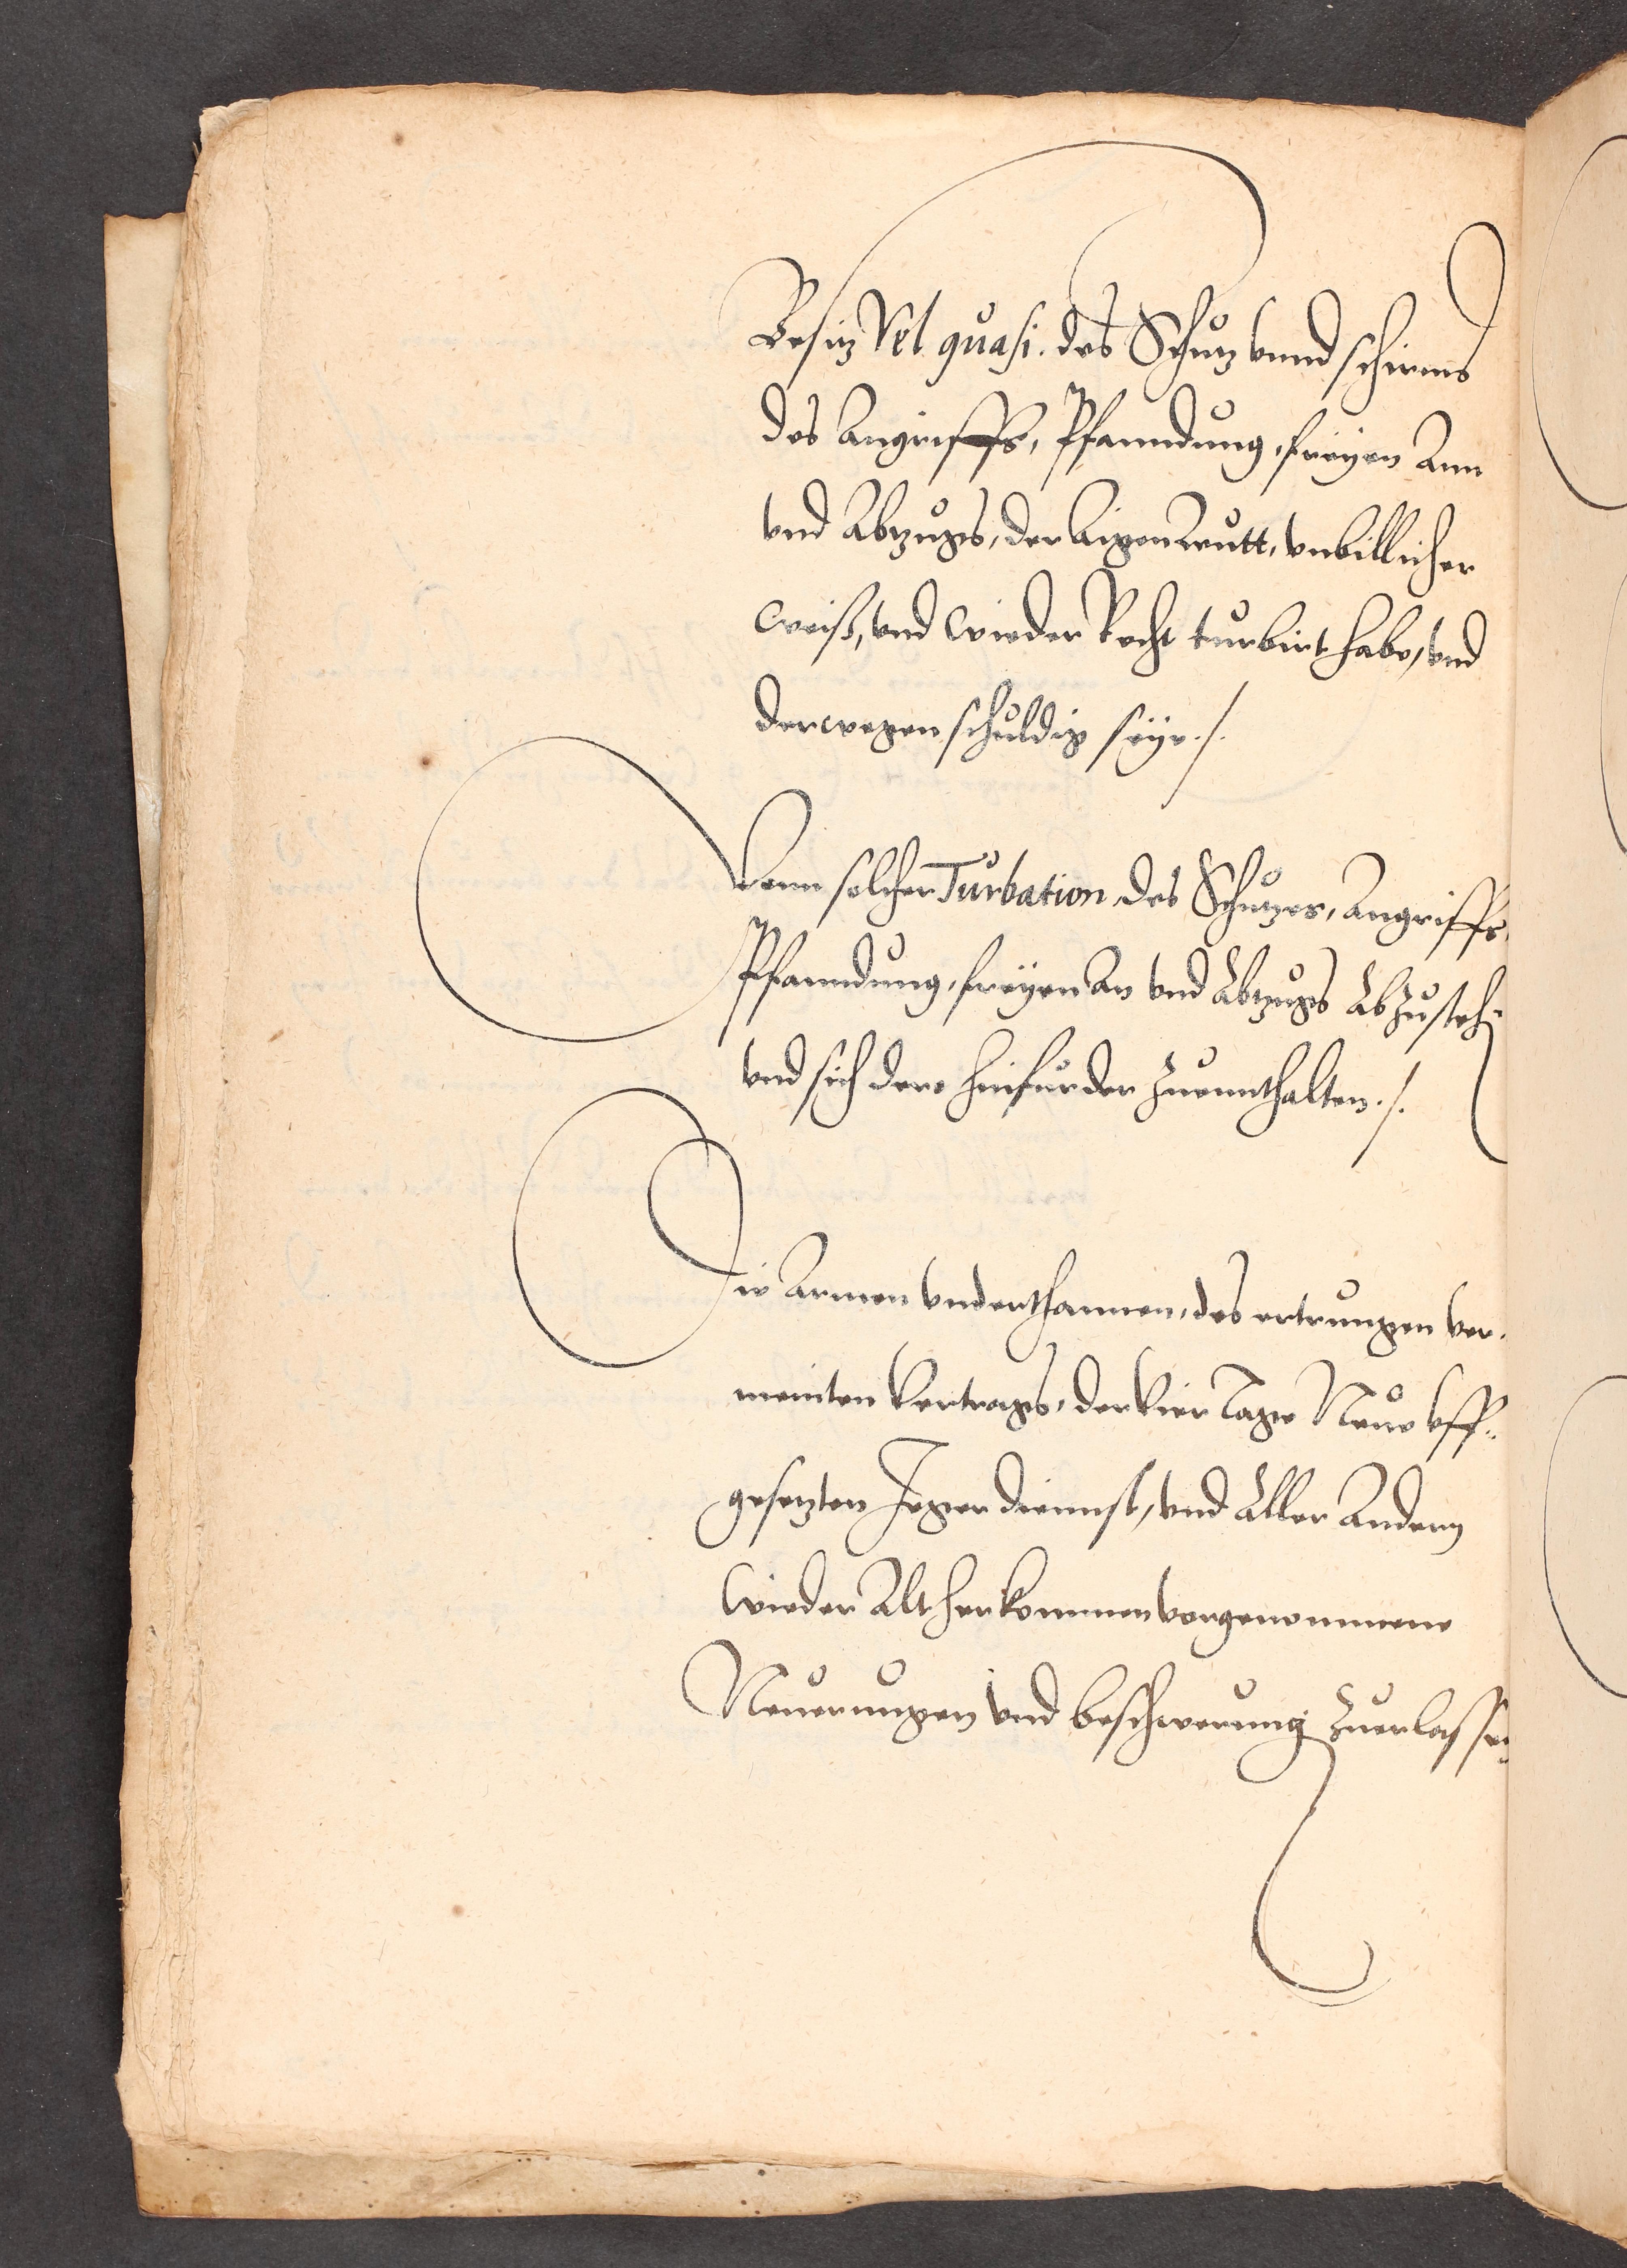 Besitz Vel quasi. des Schutz vnnd schirms
des Angriffs, Pfanndung, freyen Ann
vnd Abzugs, der Aigen Leutt, vnbillicher
weiß, vnd wieder Recht turbirt habe, vnd
derwegen schuldig seye ./.
Vonn solcher Turbation des Schutzes, Angriffs,
Pfanndung, freyen An vnd Abzugs Abzusteh=
vnd sich dero hinfürder zuennthalten ./.
Die Armen Vnderthannen, des ertrungen ver=
meinten Vertrags, der Vier Tage Neue vff=
gesetzten Jeger diennst, vnd Aller Andern
wieder Alt herkommen vorgenommene
Neuerungen vnd beschwerung zuerlassen